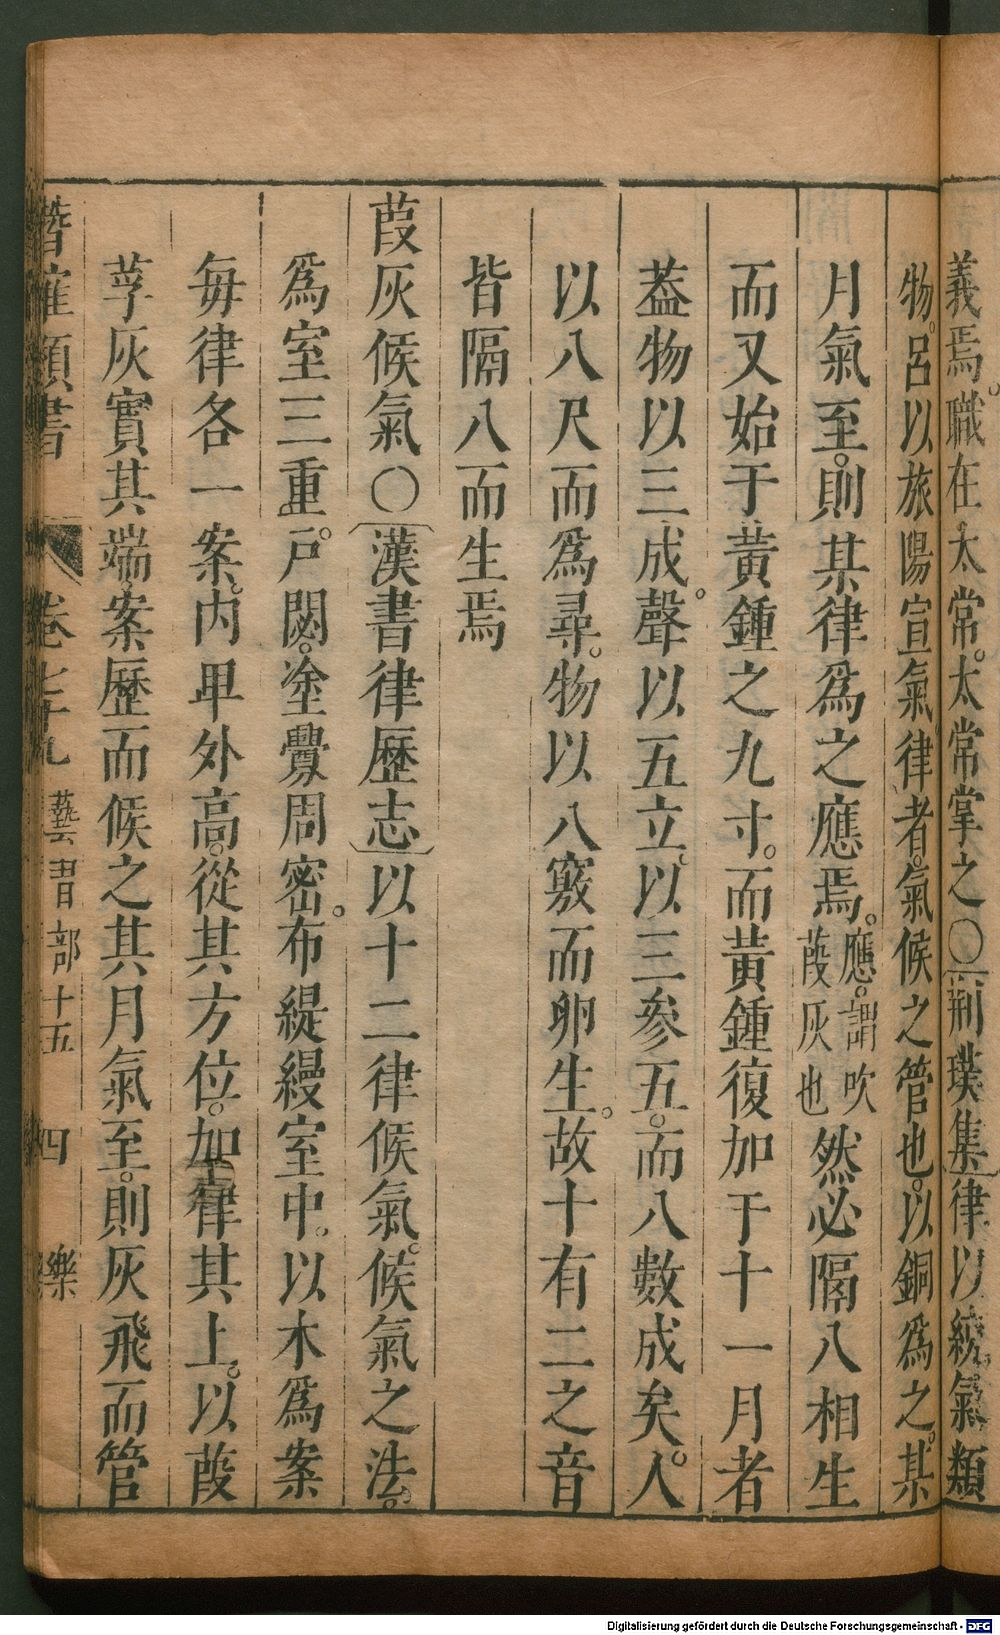 義焉。職在太常。太常掌之〇荆璞集律以統氣類
物。呂以旅陽宣氣律者。氣候之管也。以銅爲之。某
月氣至。則某律爲之應焉。應。謂吹葭灰也然必隔八相生
而又始于黃鍾之九寸。而黃鍾復加于十一月者
葢物以三成。聲以五立。以三參五。而八數成矣。人
以八尺而爲尋。物以八竅而卵生。故十有二之音
皆隔八而生焉
葭灰候氣〇漢書律歷志以十二律候氣。候氣之法。
爲室三重。戶閟。塗釁周密。布緹縵室中。以木爲案
每律各一案。內卑外高。從其方位。加律其上。以葭
莩灰實其端案歷而候之其月氣至。則灰飛而管
潛確類書 卷七十九 藝習部十五 四 樂
Digitalisierung gefördert durch die Deutsche Forschungsgemeinschaft - DFG